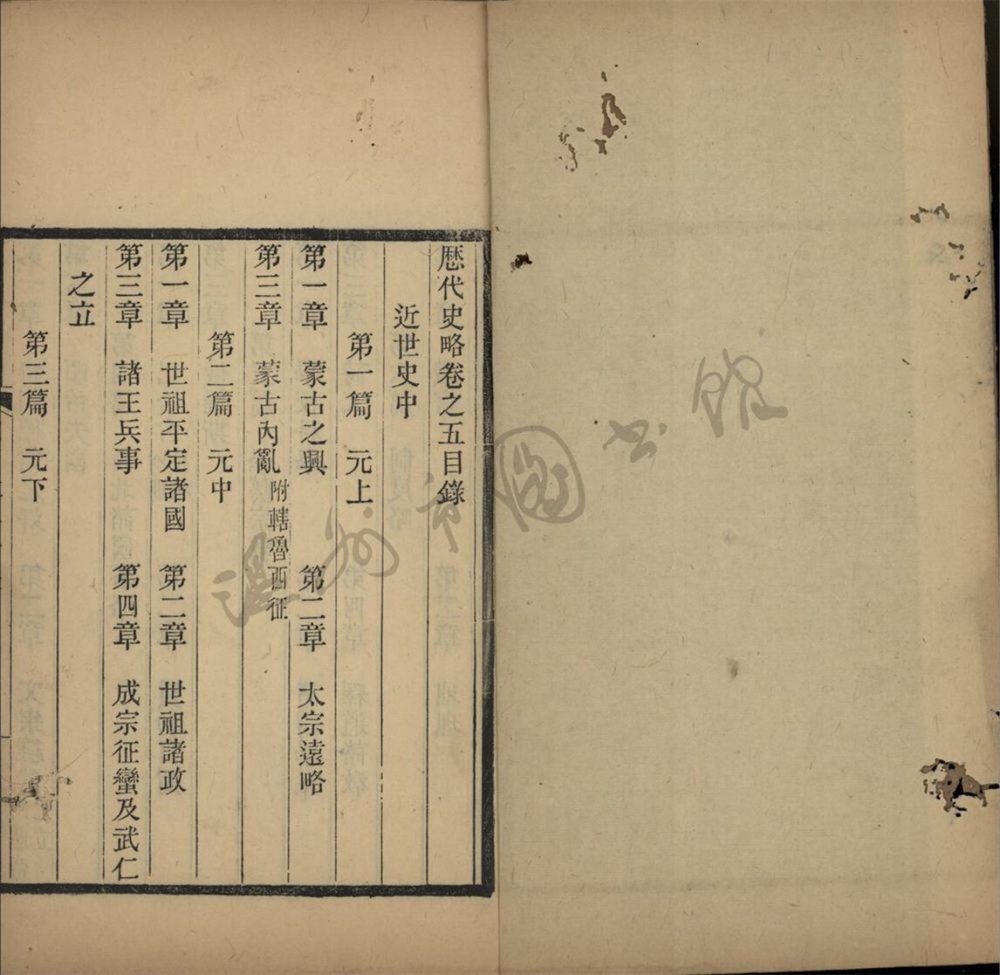 歷代史略卷之五目錄
近世史中
第一篇 元上
第一章 蒙古之興 第二章 太宗遠略
第三章 蒙古內亂 附轄魯西征
第二篇 元中
第一章 世祖平定諸國 第二章 世祖諸政
第三章 諸王兵事 第四章 成宗征蠻及武仁
之立
第三篇 元下
溫州市圖書館